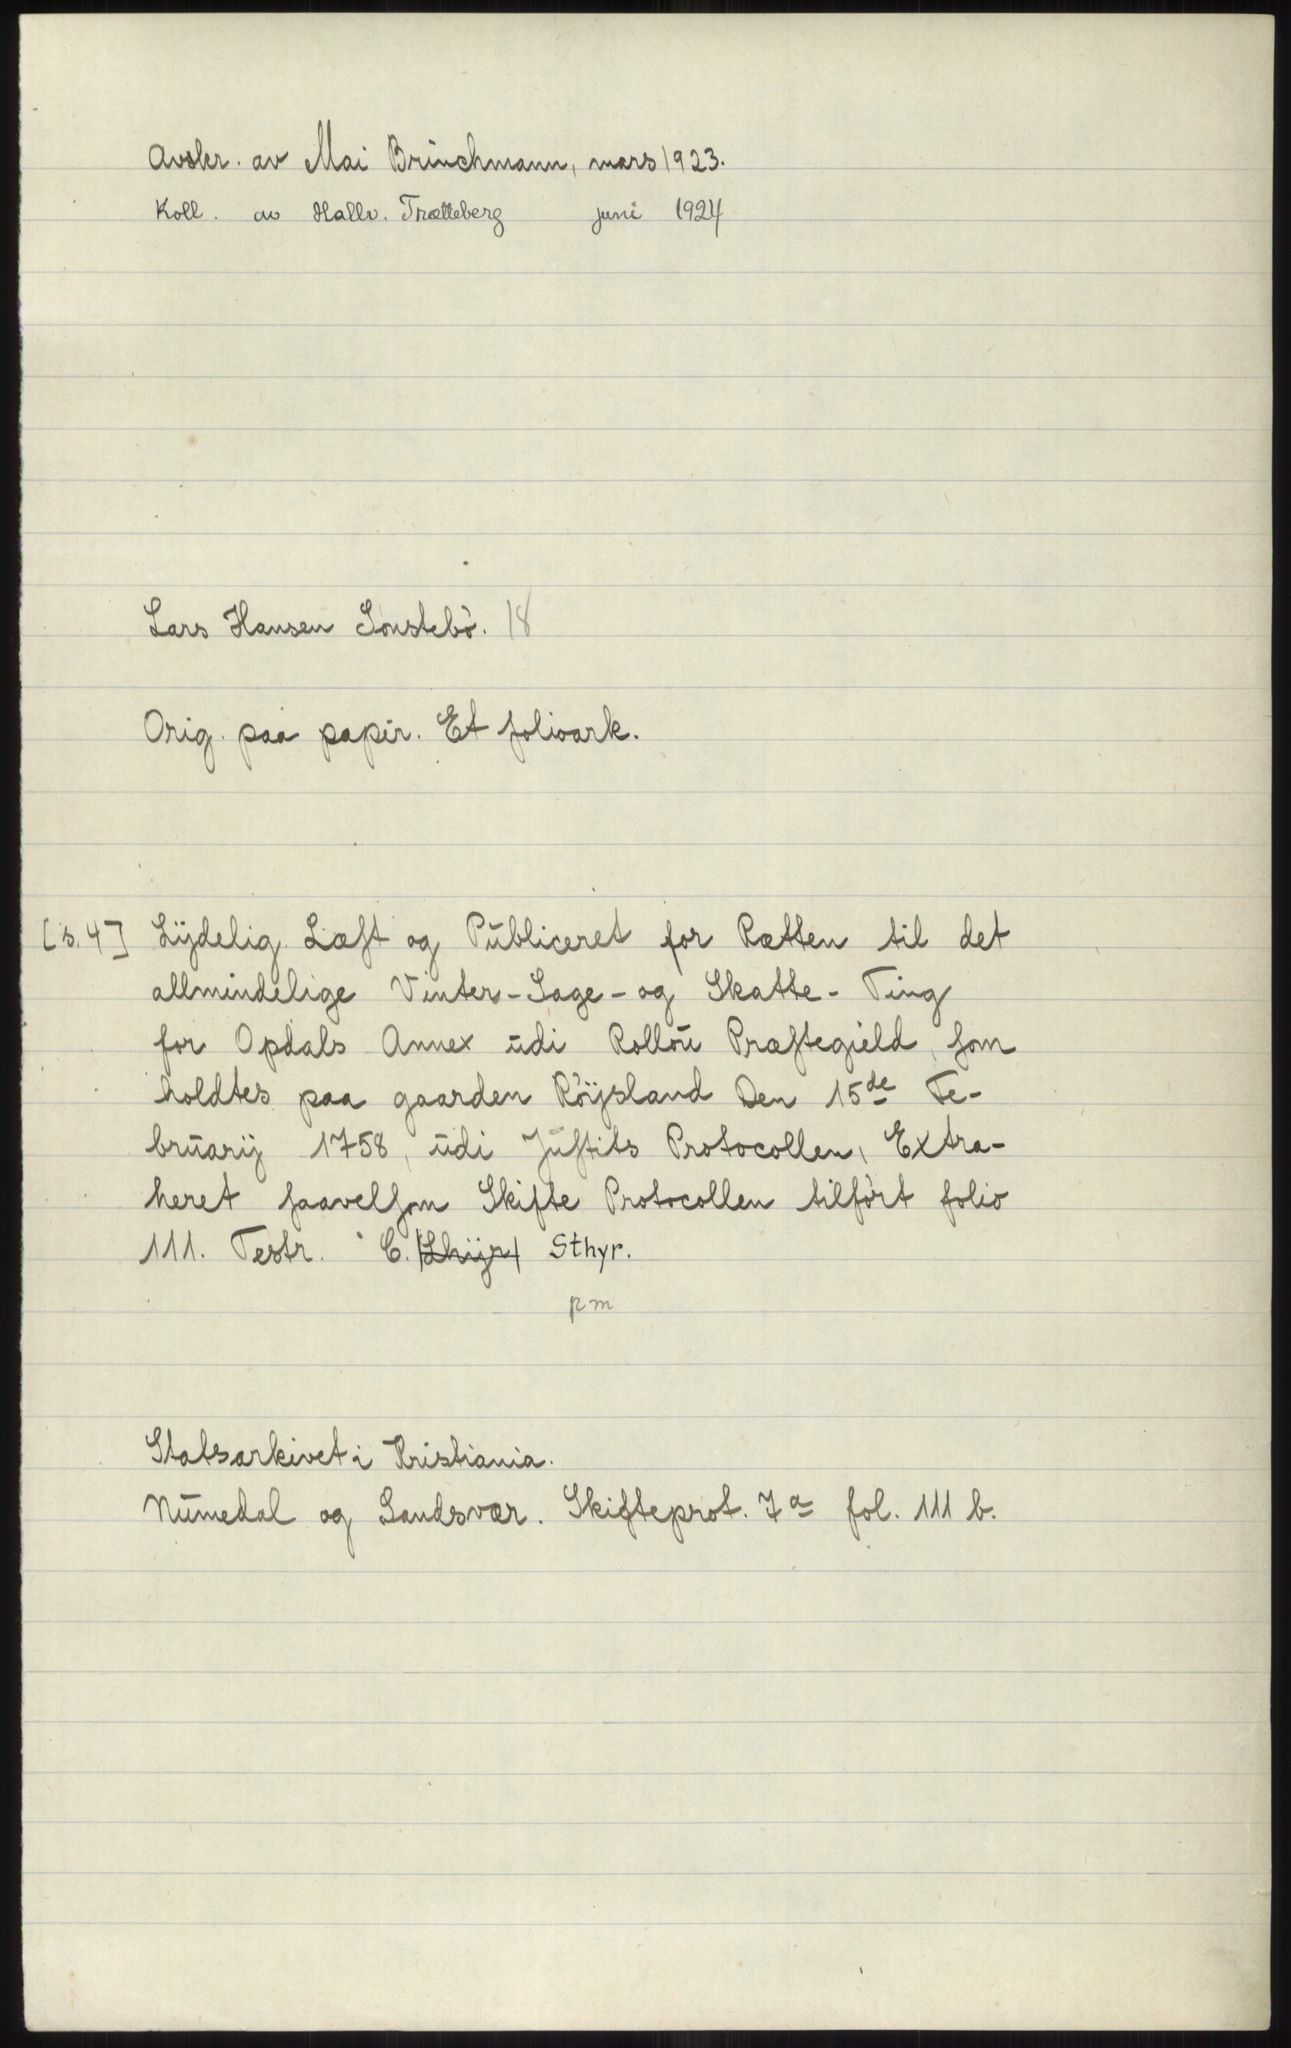 Avskr. av Mai Brünchmann, mars 1923.
Koll. av Hallv. Trætteberg juni 1924
Lars Hansen Sönstebö. 18
Orig. paa papir. Et folioark.
[s. 4] Lÿdelig Læſt og Publiceret for Rætten til det
allmindelige Vinter-Sage-og Skatte-Ting
for Opdals Annex udi Rollou Præſtegield, ſom
holdtes paa gaarden Röÿsland Den 15de Fe-
bruarÿ 1758, udi Juſtits Protocollen, Extra-
heret ſaavelſom Skifte Protocollen tilfört folio
111. Testr. C. Sthyr.
p m
Statsarkivet i Kristiania.
Numedal og Sandsvær. Skifteprot. 7a fol. 111 b.